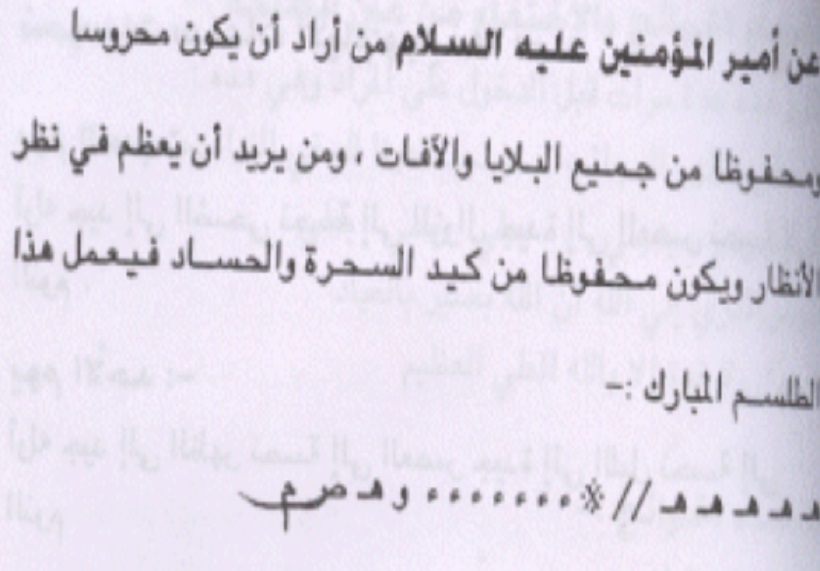 عن أمير المؤمنين عليه السلام من أراد أن يكون محروسا
ومحفوظا من جميع البلايا والآفات ، ومن يريد أن يعظم في نظر
الأنظار ويكون محفوظا من كيد السحرة والحساد فيعمل هذا
الطلسم المبارك :-
هـ هـ هـ هـ // * ء ء ء ء ء ء ء و هـ ض م